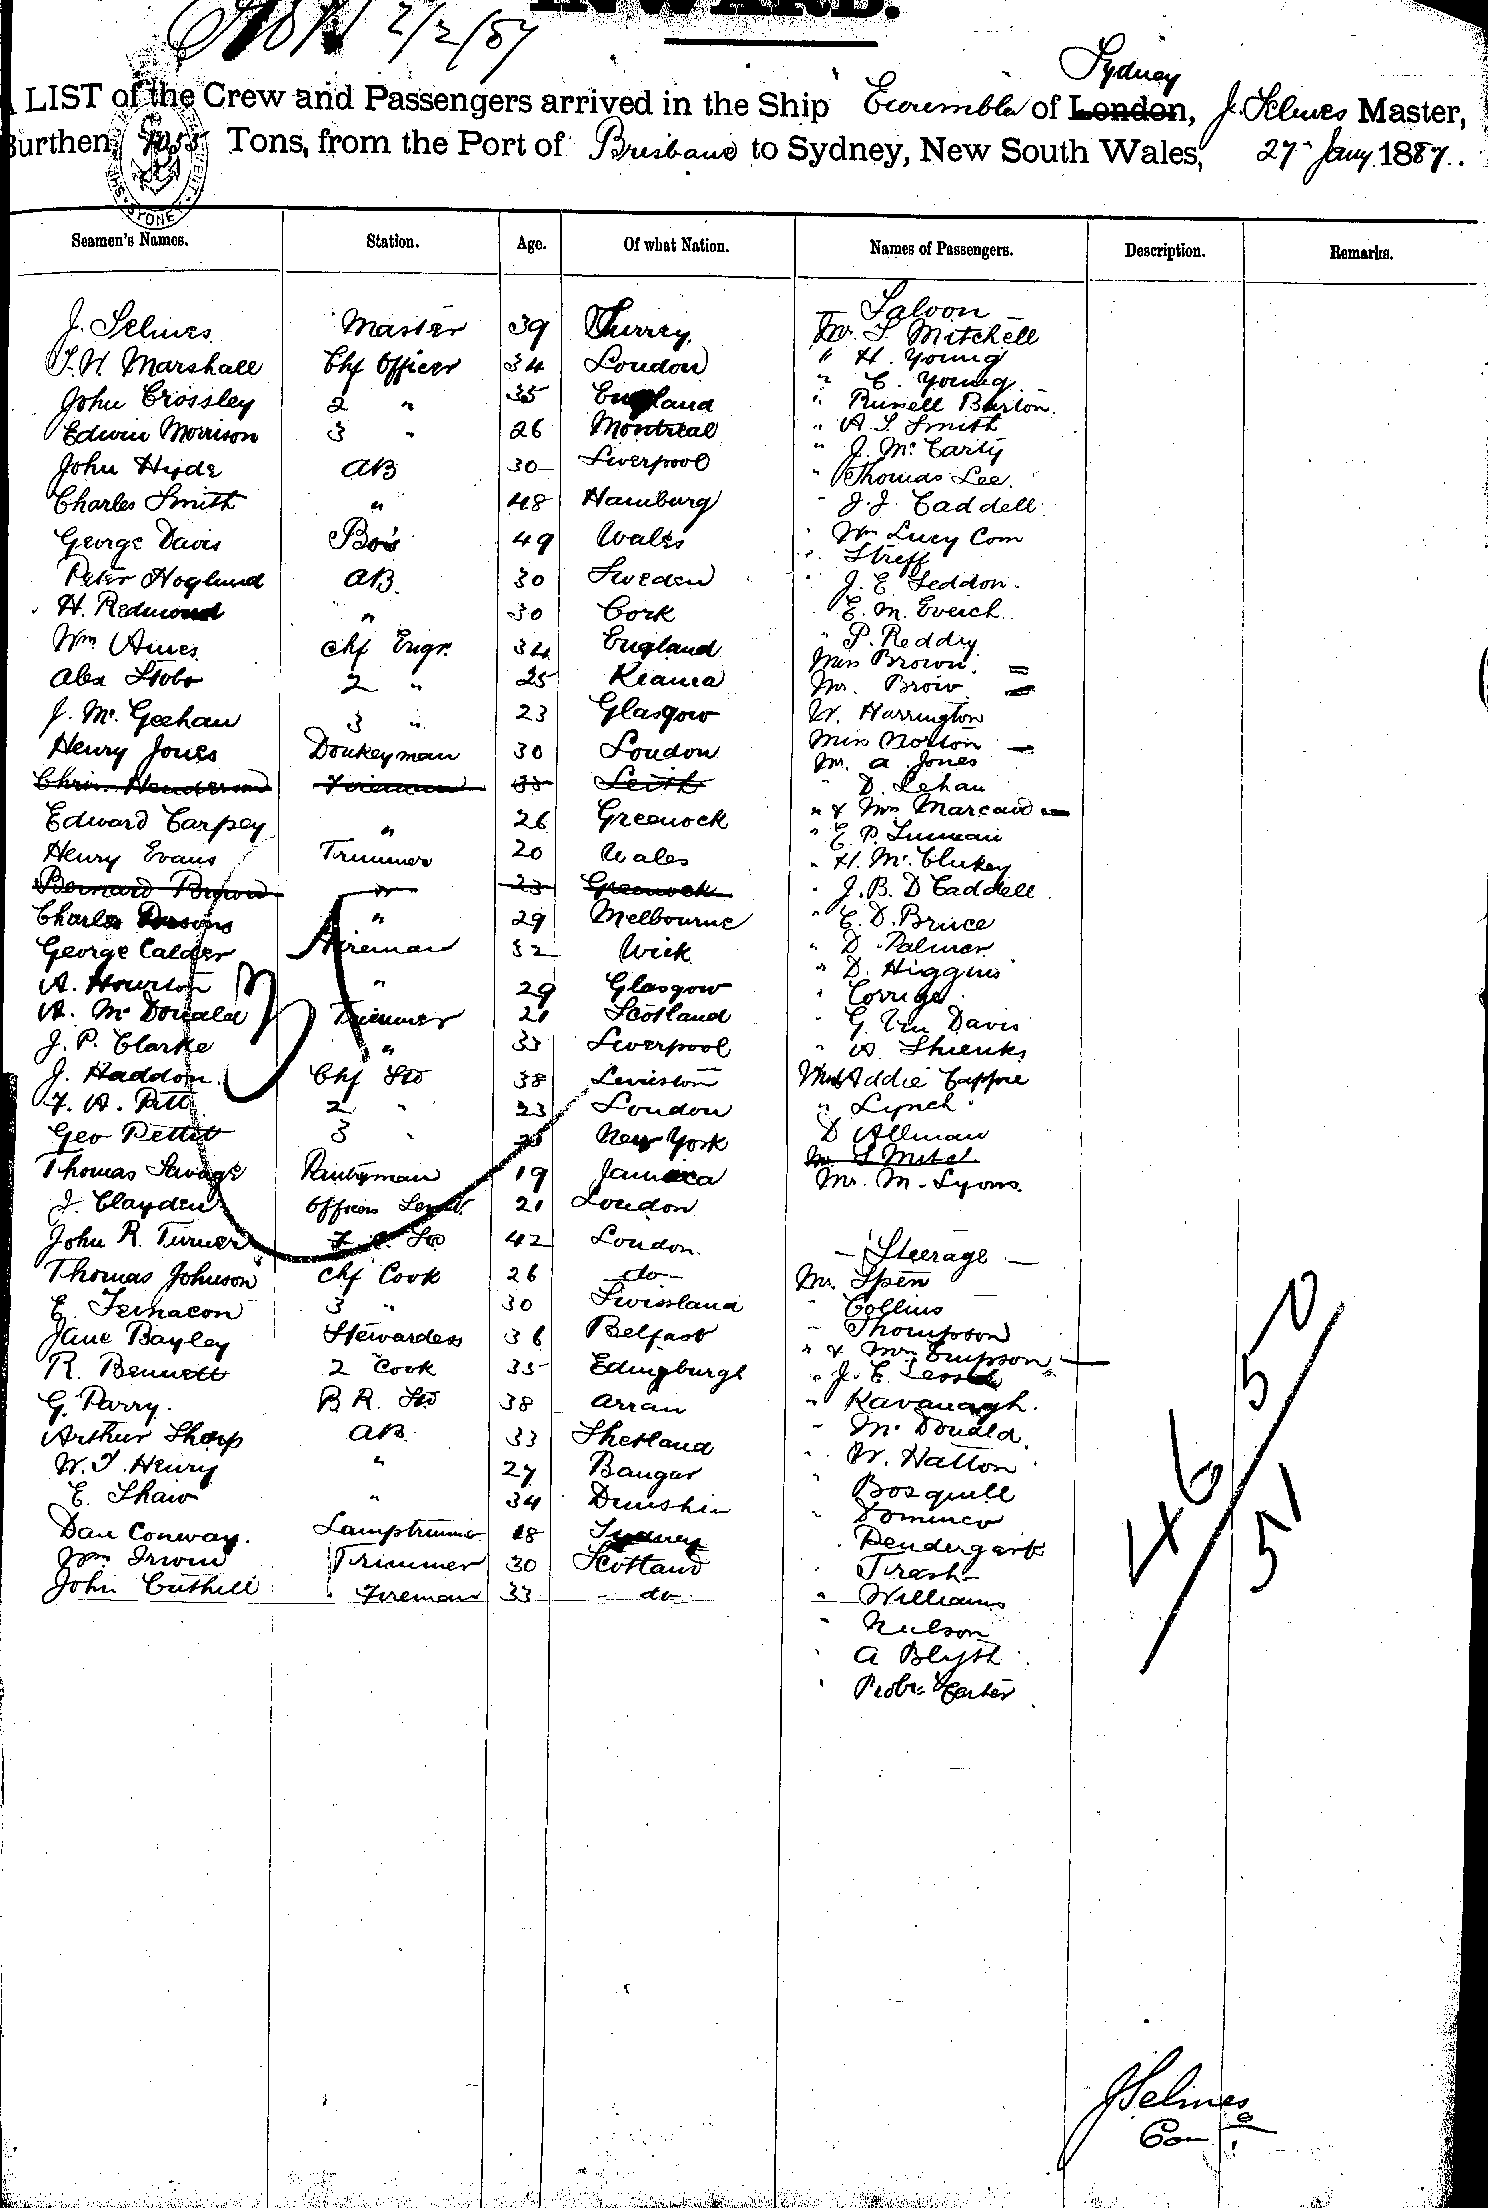 INWARD.
2/2/87
Sydney
LIST of the Crew and Passengers arrived in the Ship Eurimbla of London, J. Selmes Master,
Burthen, Tons, from the Port of Brisbane to Sydney, New South Wales, 27 Jany 1887.
Seamen's Names. Station. Age. Of what Nation. Names of Passengers. Description. Remarks.
Saloon
J. Selmes Master 39 Surrey Mr. S Mitchell
Marshall Chf Officer 34 London " H. Young
" C. Young
John Crossley 2 " 35 England " Russell Barton
Edwin Morrison 3 " 26 Montreal " A S Smith
" J. McCarty
John Hyde AB 30 Liverpool " Thomas Lee
Charles Smith " 48 Hamburg " J. J. Caddell
George Davis Bos 49 Wales " Wm Lucy Com
" Streff
Peter Hoglund AB. 30 Sweden " J. E. Seddon.
H. Redmond " 30 Cork " E. M. Eveich
Wm Ames Chf Engr. 34 England " P. Reddry
Miss Brown
Alex Stobo 2 " 25 Kiama Mr. Brow
J. McGeehan 3 " 23 Glasgow W. Harrington
Henry Jones Donkeyman 30 London Miss Norton
M. A Jones
Chris. Henderson Fireman 33 Leith " D. Lehau
Edward Carpey " 26 Greenock " & Mrs Marcaid
Henry Evans Trimmer 20 Wales " H. McClukey
Bernard Brown " 23 Greenock " J. B. D Caddell
Charles Parsons " 29 Melbourne " E. D. Bruce
George Calder Fireman 32 Wick " D. Palmer
" D. Higgins
A. Hourston " 29 Glasgow " Corrigo
A. McDonald Trimmer 21 Scotland " G. Davis
J. P. Clarke " 33 Liverpool " A. Shienks
J. Haddon Chf Std 38 Leviston Addie Cappie
F. A. Pitt 2 " 23 London " Lynch
Geo Pettit 3 " New York D Allman
Mr. S Mitch
Thomas Savage Pantryman 19 Jamaica Mr. M. Lyons
J. Clayden Officers Servt. 21 London
John R. Turner F. C. Std 42 London
Steerage
Thomas Johnson Chf Cook 26 do Mr. Spen
E. Ternacon 3 " 30 Swissland " Collins
Jane Bayley Stewardess 36 Belfast " Thompson
" & Mrs Empson
R. Bennett 2 Cook 35 Edingburgh " J. E.
G. Parry. B R. Std 38 Arran " Kavanagh.
Arthur Sharp AB 33 Shetland " McDonald.
W. J. Henry " 27 Bangor " W. Hatton
E. Shaw " 34 " Bosquill
" Dominco
Dan Conway. Lamptrimmer 18 Sydney " Pendergark
Wm Irwin Trimmer 30 Scotland " Tirash
John Cuthill Fireman 33 do " Williams
" Nulson
" A Blyth
" Carter
46/50
51
J Selmes
Com